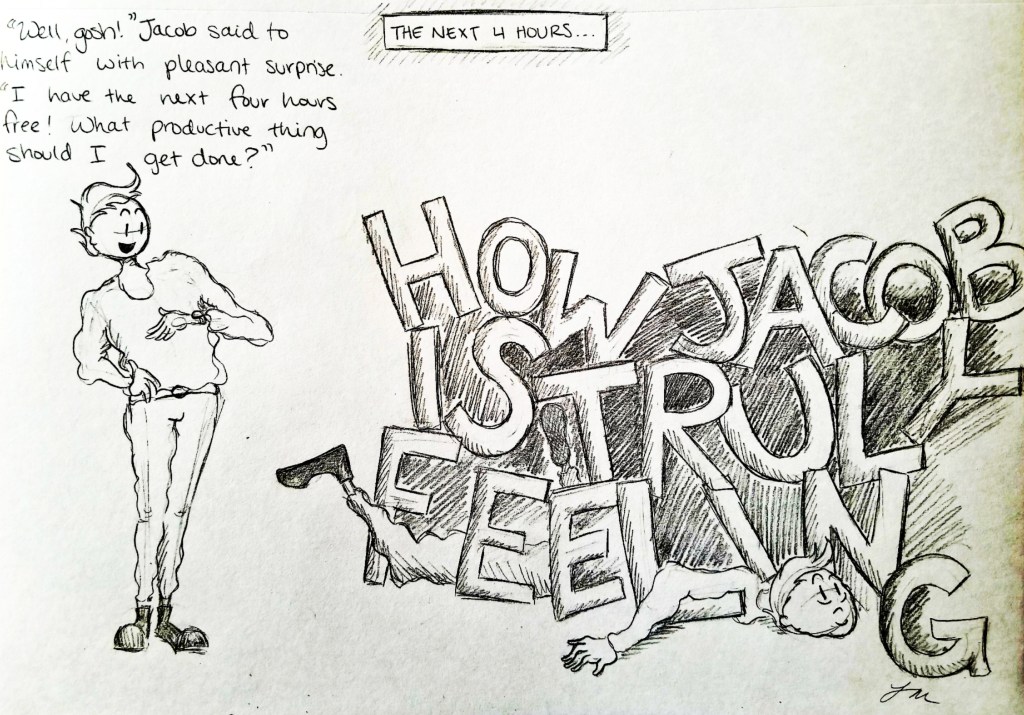 "Well, gosh!" Jacob said to
himself with pleasant surprise.
"I have the next four hours
free! What productive thing
should I get done?"
THE NEXT 4 HOURS...
HOW JACOB
IS TRULY
FEELING